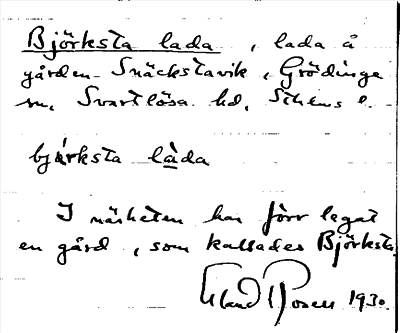 Björksta lada, lada å
gården Snäckstavik, Grödinge
sn, Svartlösa hd, Sthlms l.
bjö̀rksta là̱da
I närheten har förr legat
en gård, som kallades Björksta.
Rosell 1930.